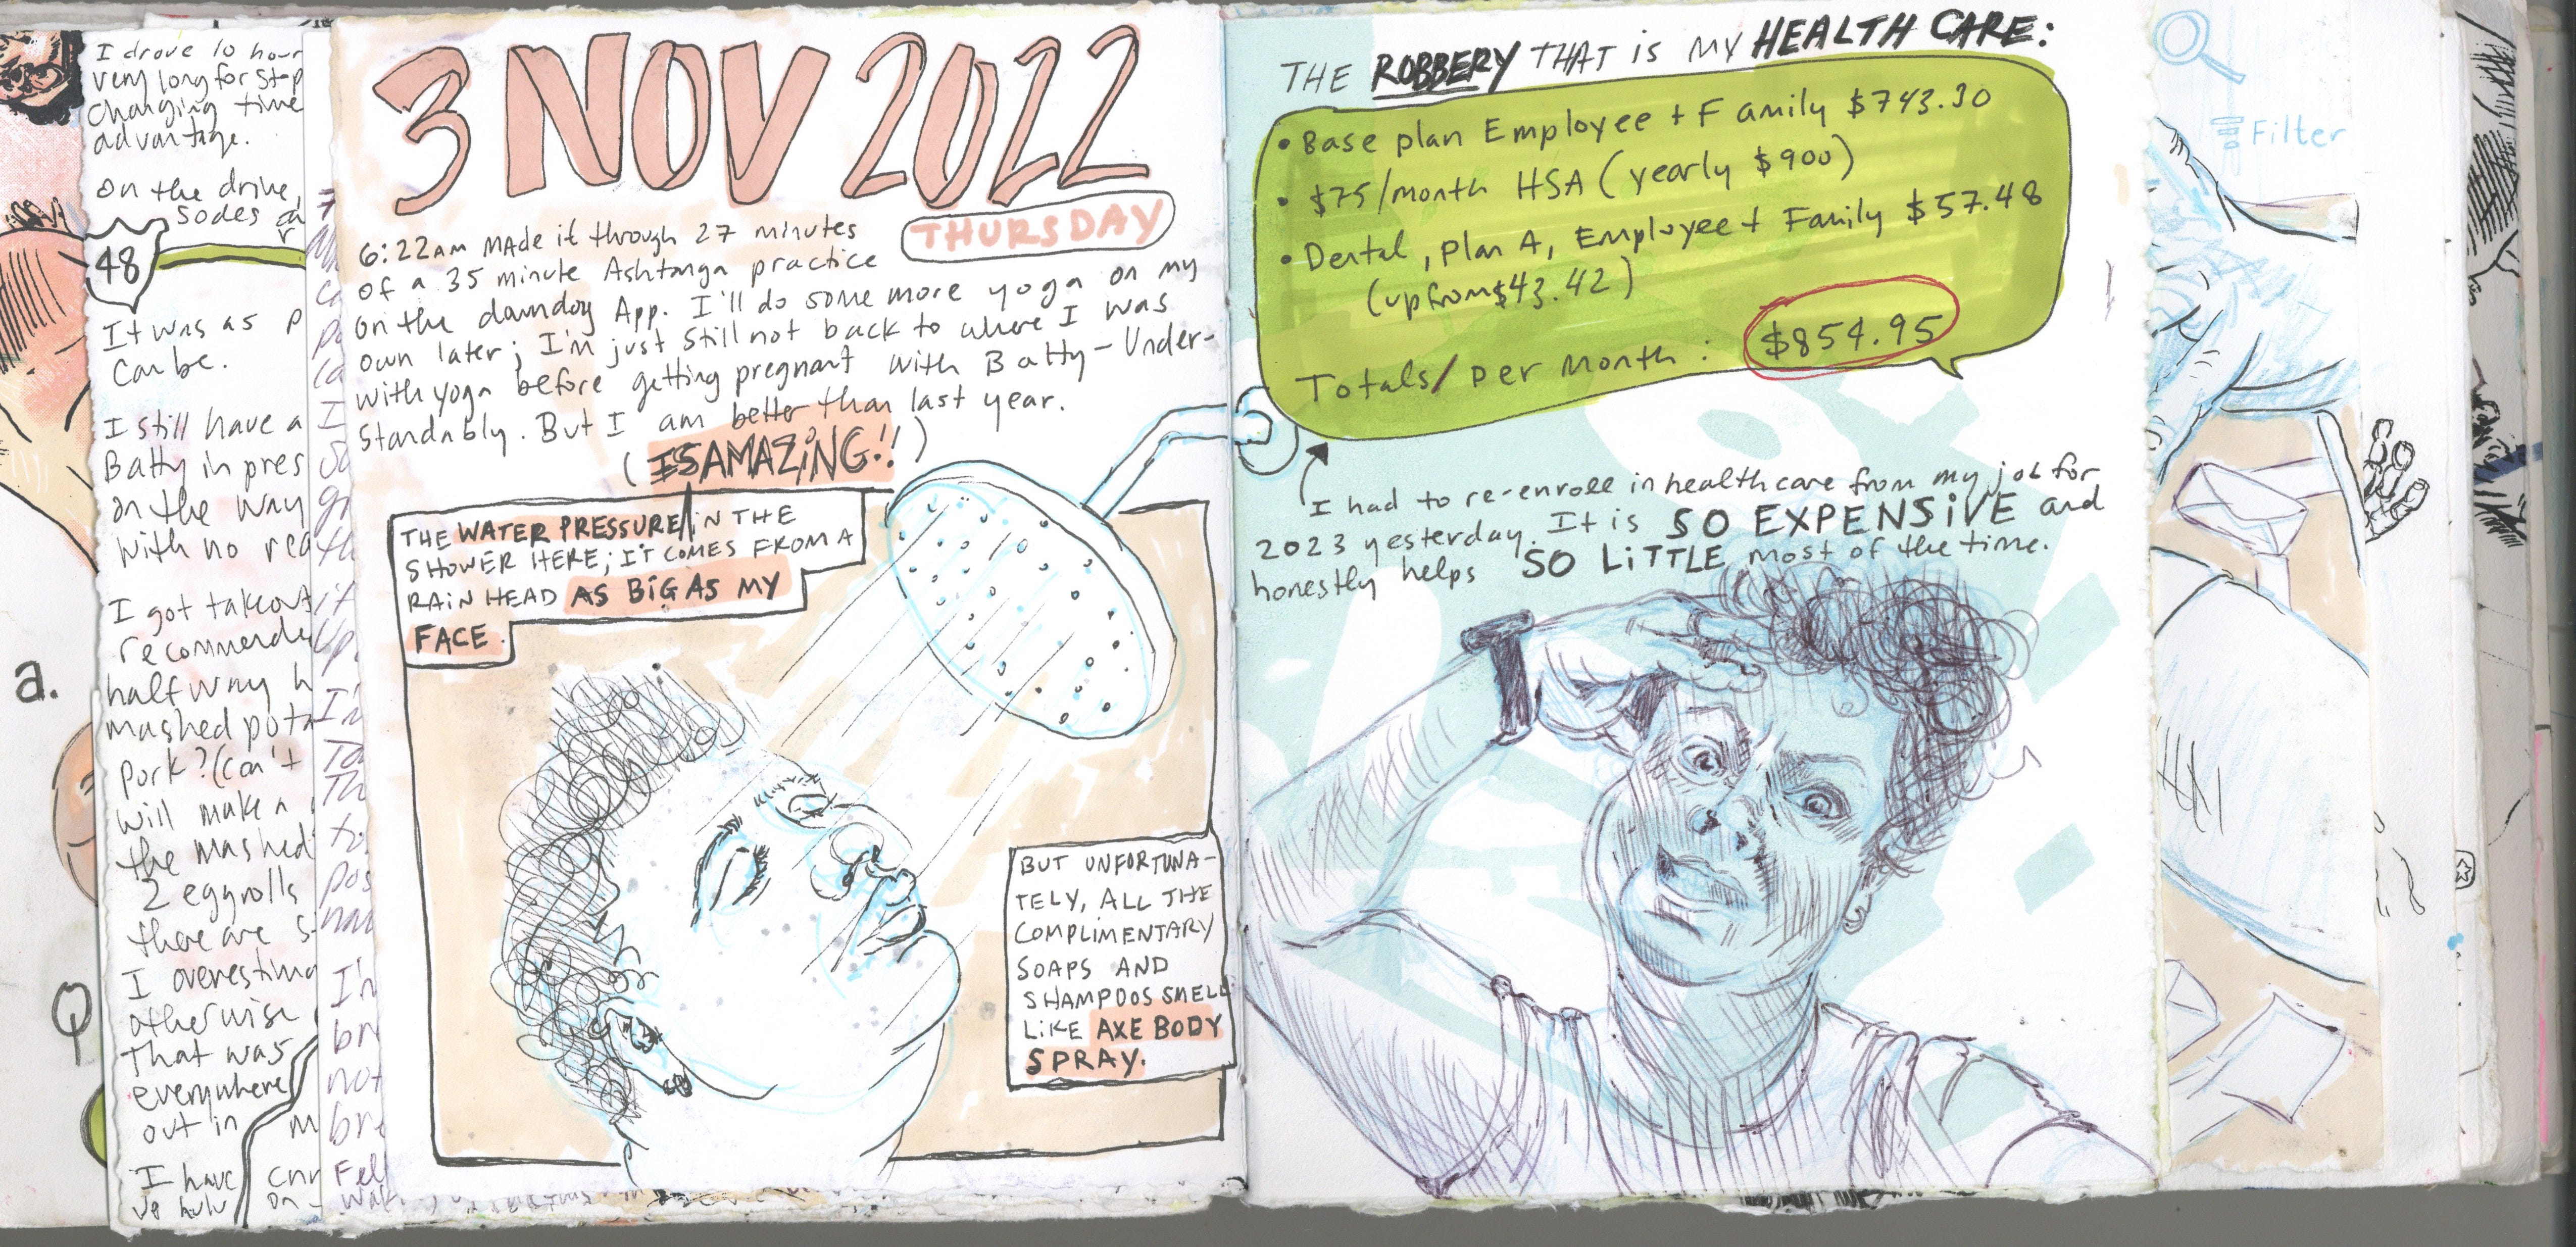 I drove 10 hour
very long for stop
changing time
advantage.
on the drive,
sodes
48
It was as p
can be.
I still have a
Batty in pres
on the way
with no rea
I got takeout
recommende
half way h
mashed pota
pork? (can't
will make a
the mashed
2 eggrolls
there are s
I overestima
otherwise
That was
everywhere
out in
I have
a.
Q
I'm
to
pos
I'm
br
not
bre
Fel
3 NOV 2022
THURSDAY
6:22AM Made it through 27 minutes
of a 35 minute Ashtanga practice
on the downdog App. I'll do some more yoga on my
own later; I'm just still not back to where I was
with yoga before getting pregnant with Batty - Under-
standably. But I am better than last year.
(IS AMAZING!!)
THE WATER PRESSURE IN THE
SHOWER HERE; IT COMES FROM A
RAIN HEAD AS BIG AS MY
FACE.
BUT UNFORTUNA-
TELY, ALL THE
COMPLIMENTARY
SOAPS AND
SHAMPOOS SMELL
LIKE AXE BODY
SPRAY.
THE ROBBERY THAT IS MY HEALTH CARE:
• Base plan Employee + Family $743.30
• $75/month HSA (yearly $900)
• Dental, plan A, Employee + Family $57.48
(up from $43.42)
Totals/ per month: $854.95
I had to re-enroll in healthcare from my job for
2023 yesterday. It is SO EXPENSIVE and
honestly helps SO LITTLE most of the time.
Filter